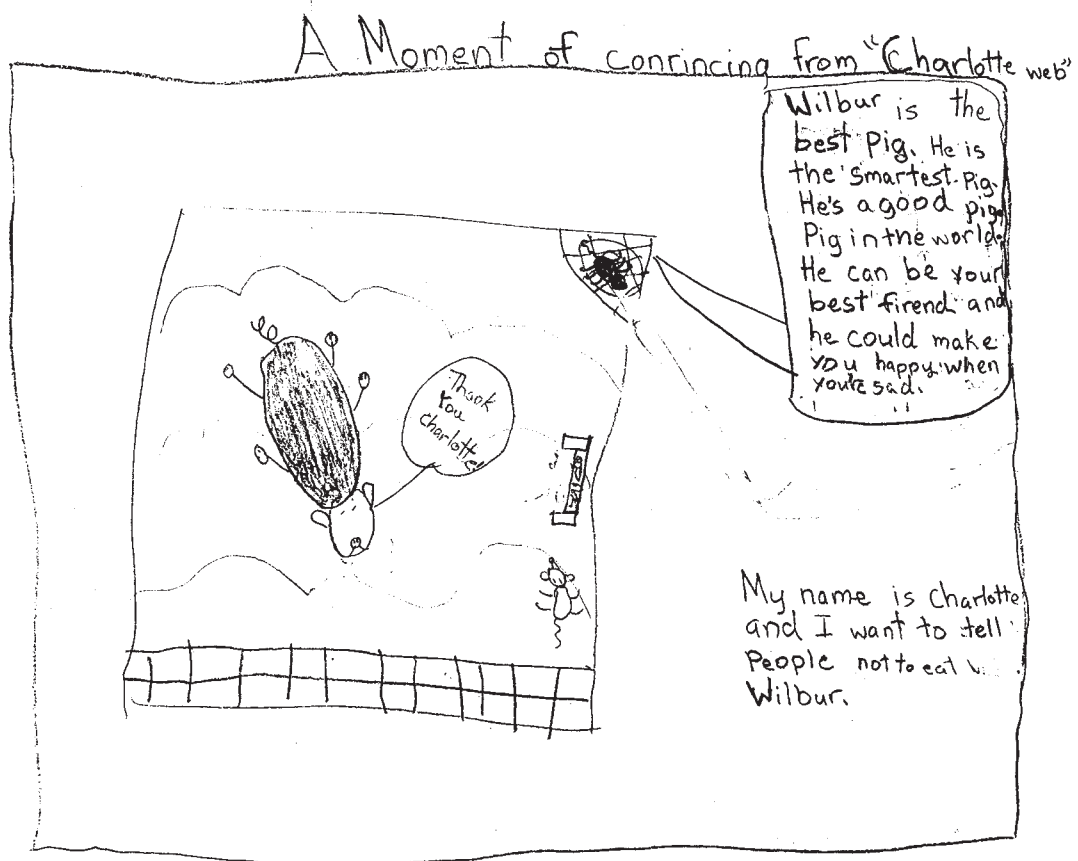 A Moment of conrincing from "Charlotte web"
Wilbur is the
best Pig. He is
the smartest Pig.
He's a good pig.
Pig in the world.
He can be your
best firend and
he could make
you happy when
you're sad.
Thank
You
Charlotte!
My name is Charlotte
and I want to tell
People not to eat
Wilbur.